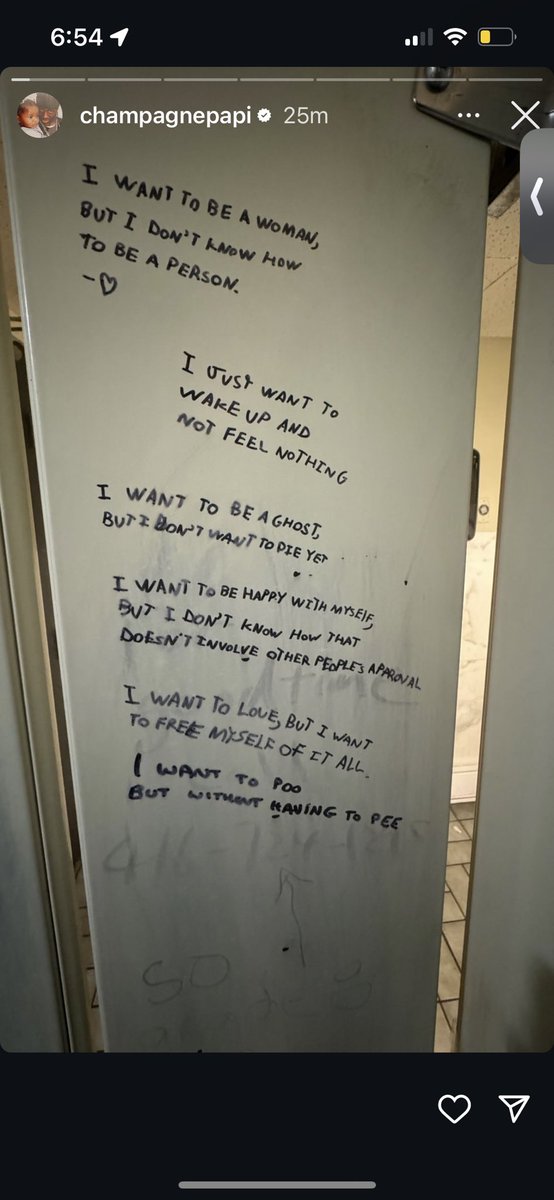 6:54
champagnepapi 25m
I WANT TO BE A WOMAN,
BUT I DON'T KNOW HOW
TO BE A PERSON.
-♡
I JUST WANT TO
WAKE UP AND
NOT FEEL NOTHING
I WANT TO BE A GHOST,
BUT I DON'T WANT TO DIE YET
I WANT TO BE HAPPY WITH MYSELF,
BUT I DON'T KNOW HOW THAT
DOESN'T INVOLVE OTHER PEOPLE'S APPROVAL
I WANT TO LOVE, BUT I WANT
TO FREE MYSELF OF IT ALL.
I WANT TO POO
BUT WITHOUT HAVING TO PEE
SO